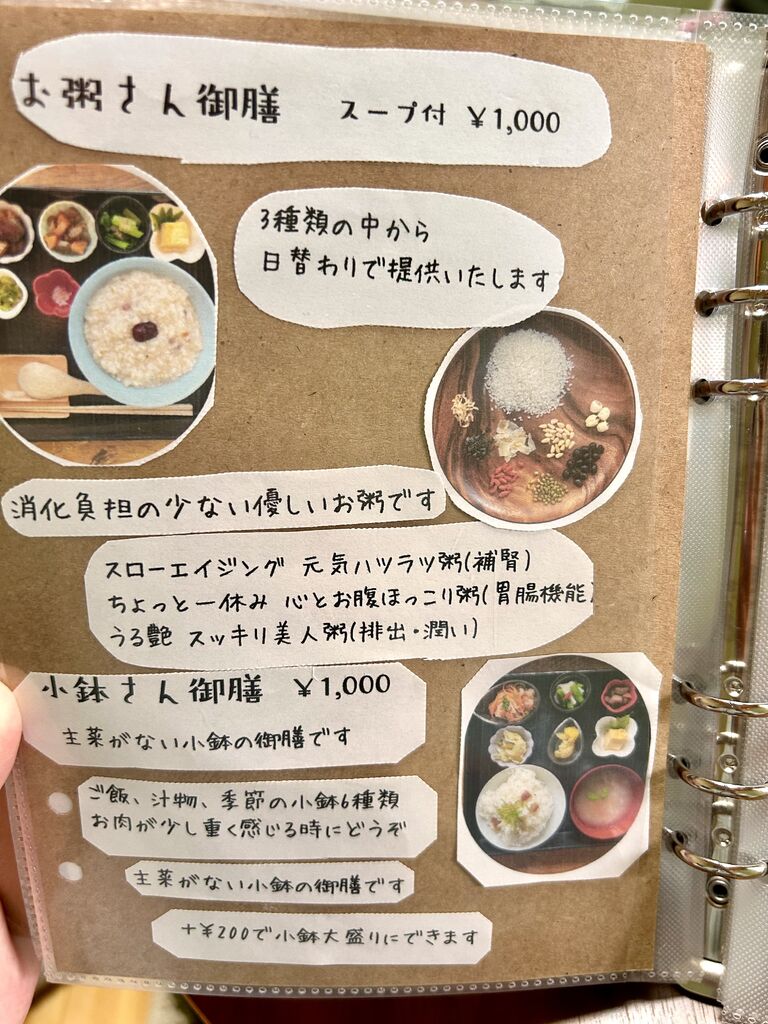 お粥さん御膳 スープ付 ¥1,000
3種類の中から
日替わりで提供いたします
消化負担の少ない優しいお粥です
スローエイジング 元気ハツラツ粥(補腎)
ちょっと一休み 心とお腹ほっこり粥(胃腸機能)
うる艶 スッキリ美人粥(排出・潤い)
小鉢さん御膳 ¥1,000
主菜がない小鉢の御膳です
ご飯、汁物、季節の小鉢6種類
お肉が少し重く感じる時にどうぞ
主菜がない小鉢の御膳です
+¥200で小鉢大盛りにできます